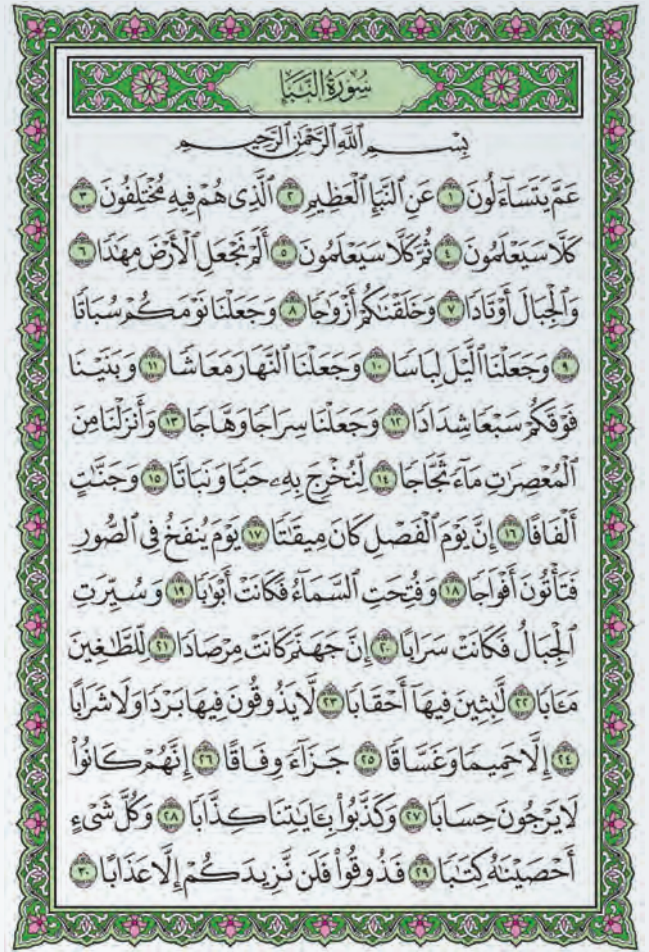 سُورَةُ النَّبَإِ
بِسْمِ ٱللَّهِ ٱلرَّحْمَٰنِ ٱلرَّحِيمِ
عَمَّ يَتَسَآءَلُونَ ١ عَنِ ٱلنَّبَإِ ٱلْعَظِيمِ ٢ ٱلَّذِى هُمْ فِيهِ مُخْتَلِفُونَ ٣
كَلَّا سَيَعْلَمُونَ ٤ ثُمَّ كَلَّا سَيَعْلَمُونَ ٥ أَلَمْ نَجْعَلِ ٱلْأَرْضَ مِهَٰدًا ٦
وَٱلْجِبَالَ أَوْتَادًا ٧ وَخَلَقْنَٰكُمْ أَزْوَٰجًا ٨ وَجَعَلْنَا نَوْمَكُمْ سُبَاتًا
٩ وَجَعَلْنَا ٱلَّيْلَ لِبَاسًا ١٠ وَجَعَلْنَا ٱلنَّهَارَ مَعَاشًا ١١ وَبَنَيْنَا
فَوْقَكُمْ سَبْعًا شِدَادًا ١٢ وَجَعَلْنَا سِرَاجًا وَهَّاجًا ١٣ وَأَنزَلْنَا مِنَ
ٱلْمُعْصِرَٰتِ مَآءً ثَجَّاجًا ١٤ لِّنُخْرِجَ بِهِۦ حَبًّا وَنَبَاتًا ١٥ وَجَنَّٰتٍ
أَلْفَافًا ١٦ إِنَّ يَوْمَ ٱلْفَصْلِ كَانَ مِيقَٰتًا ١٧ يَوْمَ يُنفَخُ فِى ٱلصُّورِ
فَتَأْتُونَ أَفْوَاجًا ١٨ وَفُتِحَتِ ٱلسَّمَآءُ فَكَانَتْ أَبْوَٰبًا ١٩ وَسُيِّرَتِ
ٱلْجِبَالُ فَكَانَتْ سَرَابًا ٢٠ إِنَّ جَهَنَّمَ كَانَتْ مِرْصَادًا ٢١ لِّلطَّٰغِينَ
مَـَٔابًا ٢٢ لَّٰبِثِينَ فِيهَآ أَحْقَابًا ٢٣ لَّا يَذُوقُونَ فِيهَا بَرْدًا وَلَا شَرَابًا
٢٤ إِلَّا حَمِيمًا وَغَسَّاقًا ٢٥ جَزَآءً وِفَاقًا ٢٦ إِنَّهُمْ كَانُوا۟
لَا يَرْجُونَ حِسَابًا ٢٧ وَكَذَّبُوا۟ بِـَٔايَٰتِنَا كِذَّابًا ٢٨ وَكُلَّ شَىْءٍ
أَحْصَيْنَٰهُ كِتَٰبًا ٢٩ فَذُوقُوا۟ فَلَن نَّزِيدَكُمْ إِلَّا عَذَابًا ٣٠